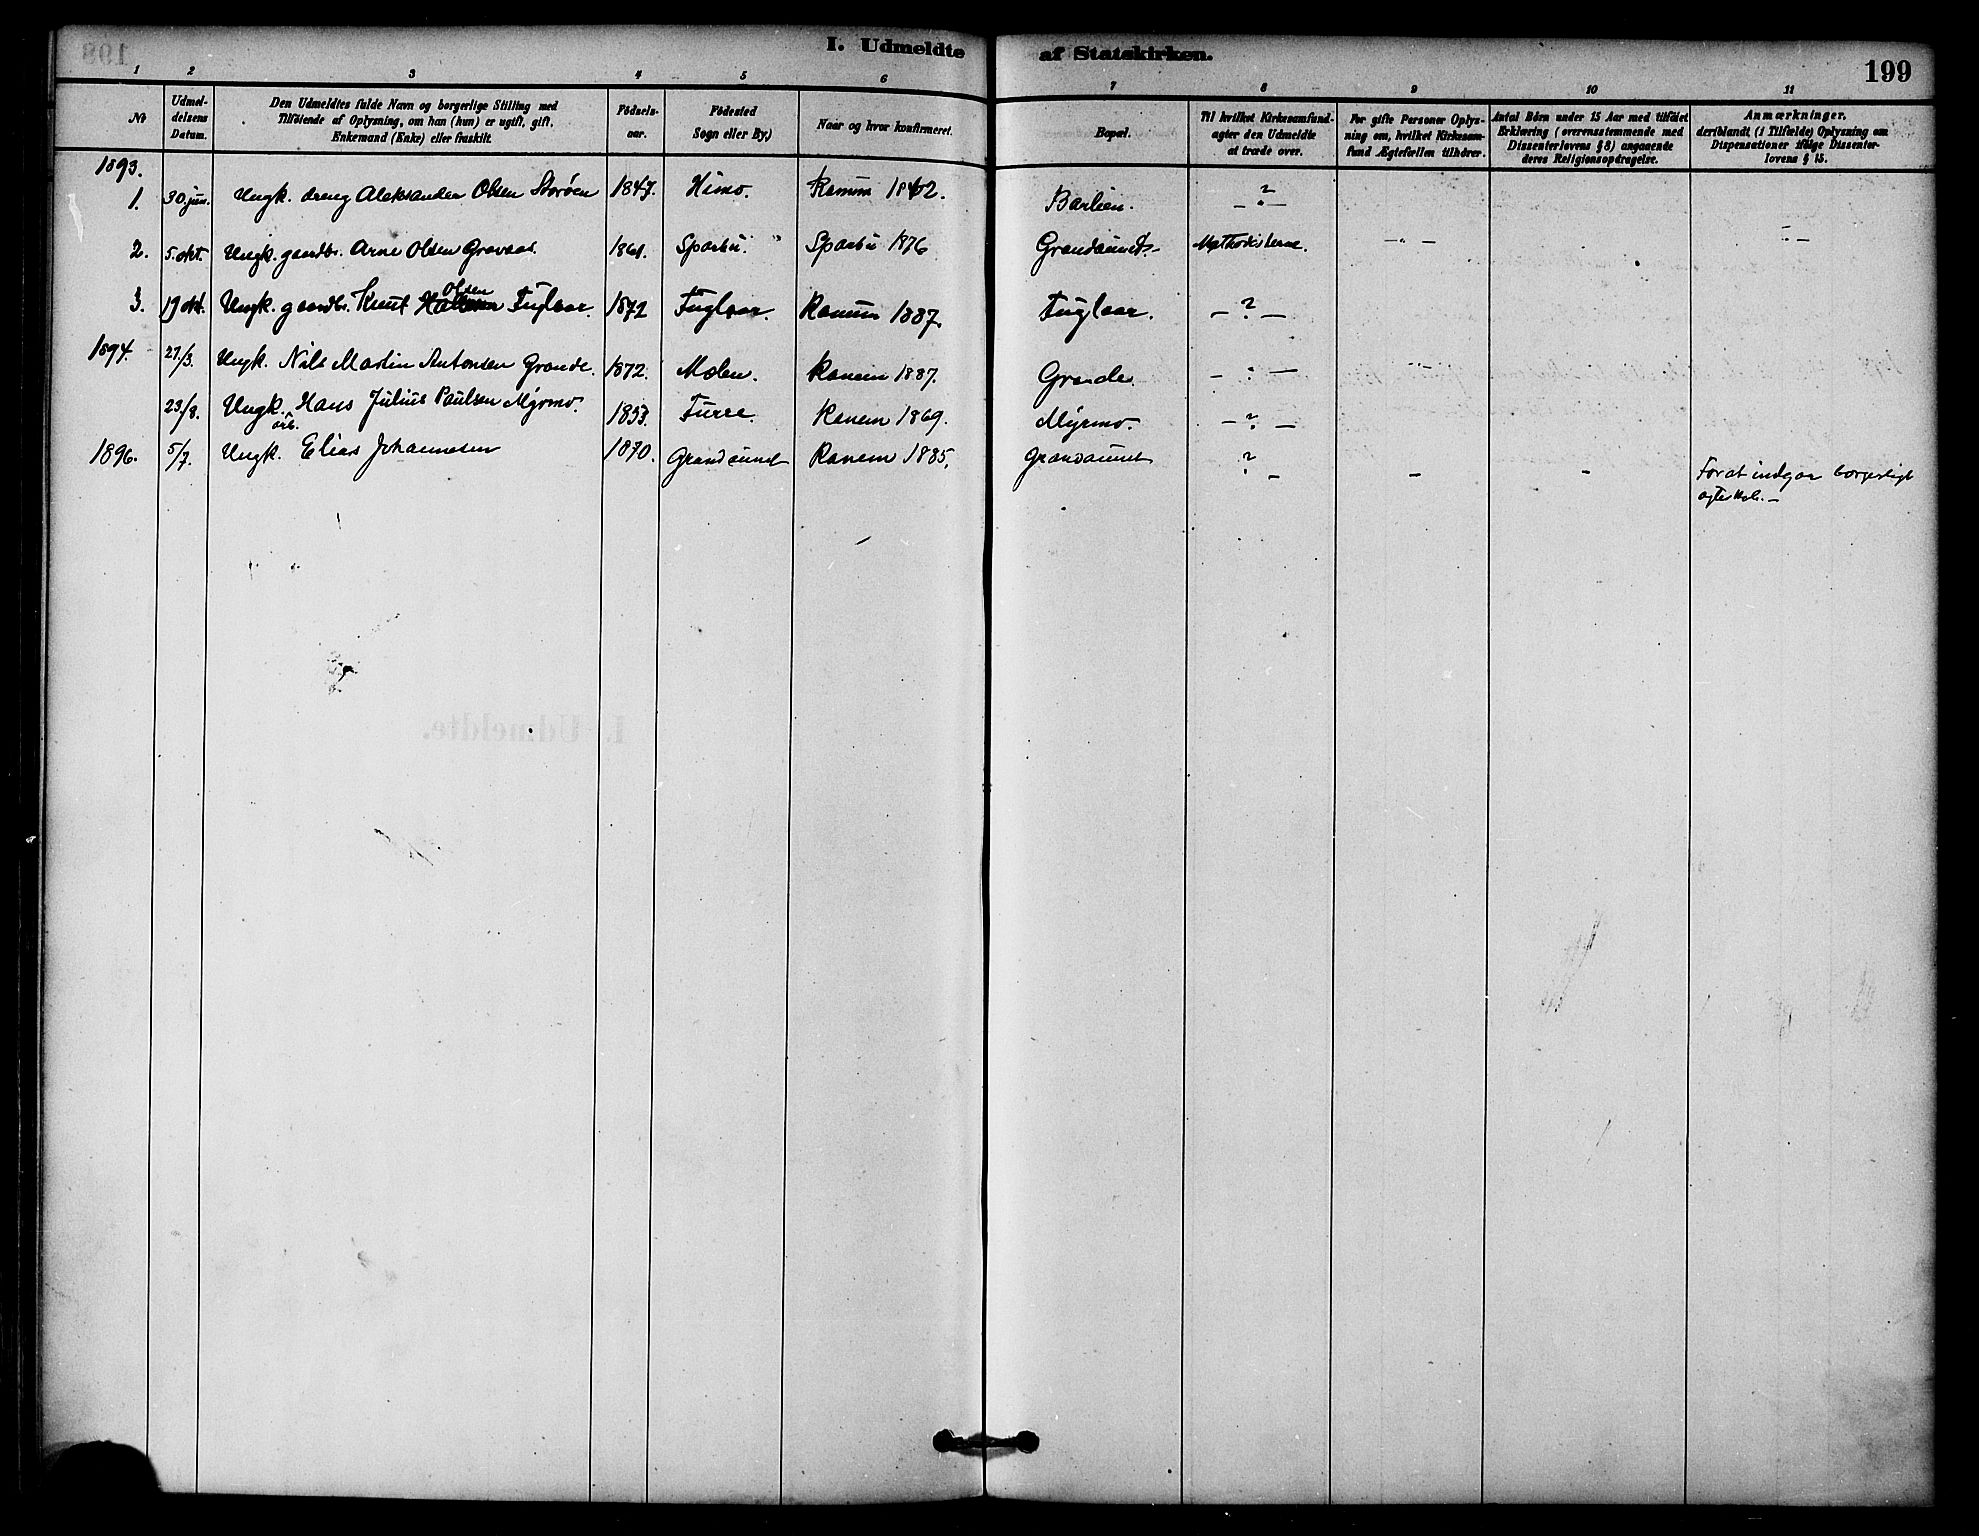 I. Udmeldte af Statskirken.
199
1 2 3 4 5 6 7 8 9 10 11
No
Udmel-
delsens
Datum.
Den Udmeldtes fulde Navn og borgerlige Stilling med
Tilföiende af Oplysning, om han (hun) er ugift, gift,
Enkemand (Enke) eller fraskilt.
Födsels-
aar.
Födested
Sogn eller By.)
Naar og hvor konfirmeret.
Bopæl.
Til hvilket Kirkesamfund
agter den Udmeldte
at træde over.
For gifte Personer Oplys-
ning om, hvilket Kirkesam-
fund Ægtefællen tilhører.
Antal Börn under 15 Aar med tilföiet
Erklæring (overensstemmende med
Dissenterlovens § 8) angaaende
deres Religionsopdragelse.
Anmærkninger.
deriblandt (i Tilfælde) Oplysning om
Dispensationer ifölge Dissenter-
lovens § 15.
1893.
1. 30. jun. Ungk. dreng Aleksander Olsen Storöen 1847. Himo. Ranem 1862. Barlien. — ? —
2. 5. okt. Ungk. gaardbr. Arne Olsen Gravaas 1861. Sparbu. Sparbu 1876 Grandaunet. Methodisterne. — " — — " —
3. 19 okt. Ungk. gaardbr. Knut Olsen Fuglaar. 1872 Fuglaar. Ranem 1887. Fuglaar. — ? —
1894. 21/3. Ungk. Nils Martin Antonsen Grande. 1872. Moen. Ranem 1887. Grande. — " —
23/8. Ungk. arb. Hans Julius Paulsen Myrmo. 1853. Furre. Ranem 1869. Myrmo. — ? —
1896. 5/7. Ungk. Elias Johannesen 1870. Grandaunet Ranem 1885. Grandaunet ? — — —
For at indgaa borgerligt
ægtesk. —
I. Udmeldte.
198